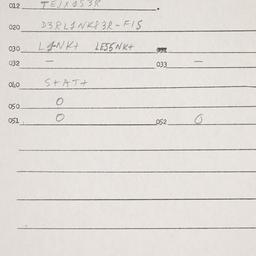 012 TEJXAS3R .
020 D3RL1NK83R-FIS
030 L1NK+ LES5NK+
032 — 033 —
040 S+AT+
050 O
051 O 052 O